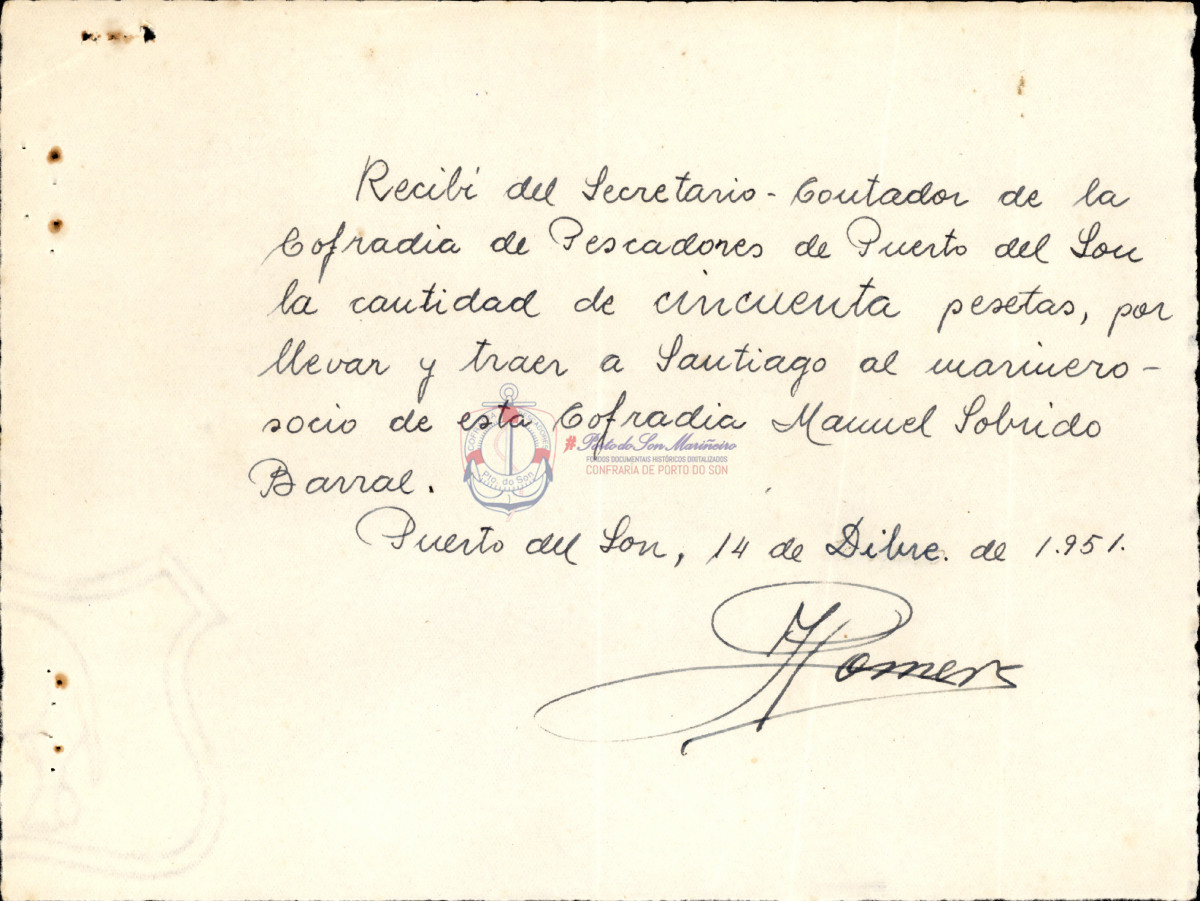 Recibí del Secretario-Contador de la
Cofradia de Pescadores de Puerto del Son
la cantidad de cincuenta pesetas, por
llevar y traer a Santiago al marinero-
socio de esta Cofradia Manuel Sobrido
Barral.
Puerto del Son, 14 de Dibre. de 1.951.
Pto. do Son
#Porto do Son Mariñeiro
FONDOS DOCUMENTAIS HISTÓRICOS DIXITALIZADOS
CONFRARÍA DE PORTO DO SON